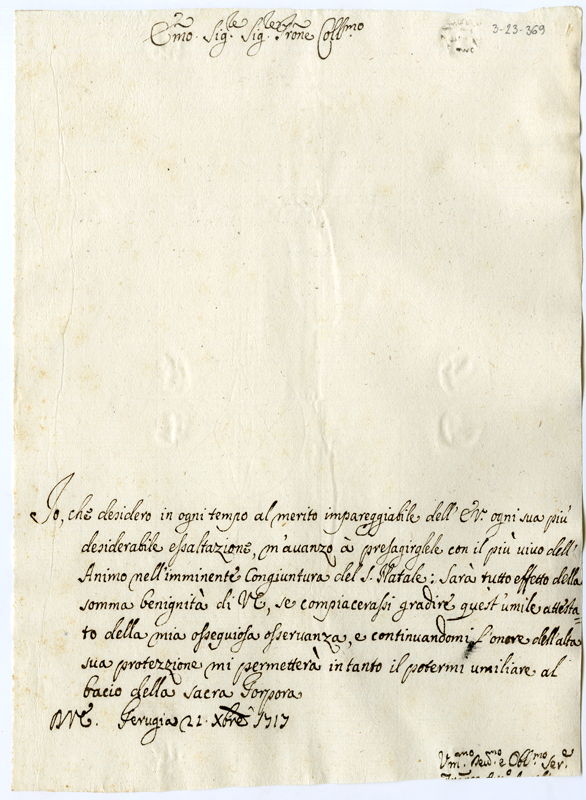 E.mo Sig.re Sig.re Prone Coll.mo
3-23-369
Io, che desidero in ogni tempo al merito impareggiabile dell' E.V. ogni sua più
desiderabile essaltazione, m'auanzo à presagirglele con il più uiuo dell'
Animo nell'imminente Congiuntura del S. Natale: Sarà tutto effetto della
somma benignità di V.E., se compiacerassi gradire quest'umile attesta-
to della mia ossequiosa osseruanza, e continuandomi l'onore dell'alta
sua protezzione mi permetterà intanto il potermi umiliare al
bacio della sacra Porpora
D.V.E. Perugia 22 Xbre 1717
Um.mo e Obl.mo Ser.e